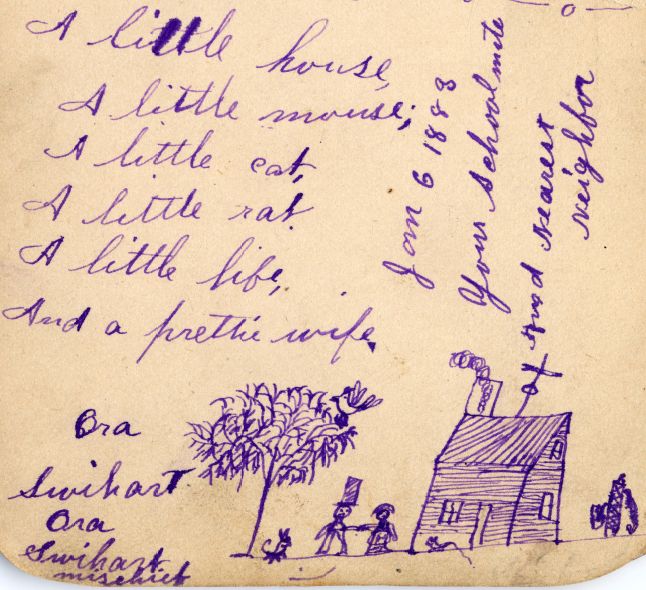 A little house,
A little mouse;
A little cat,
A little rat
A little life,
And a prettie wife.
Jan 6 1883
Your schoolmite
and nearest
neighbor
Ora
Swihart
Ora
Swihart
mischief